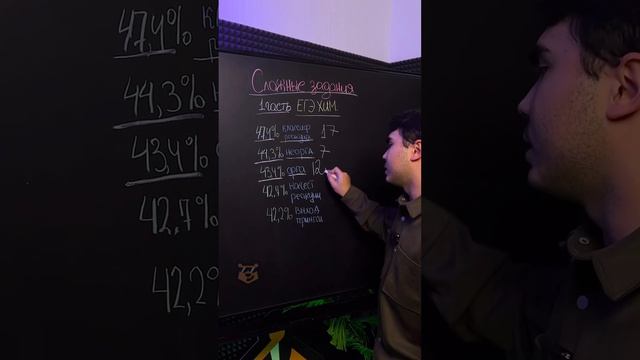 Сложные задания
1 часть ЕГЭ ХИМ.
47,4% классиф реакций 17
44,3% неорга 7
43,4% орга 12
42,7% качест реакции
42,2% выход
47,4%
44,3%
43,4%
42,7%
42,2%